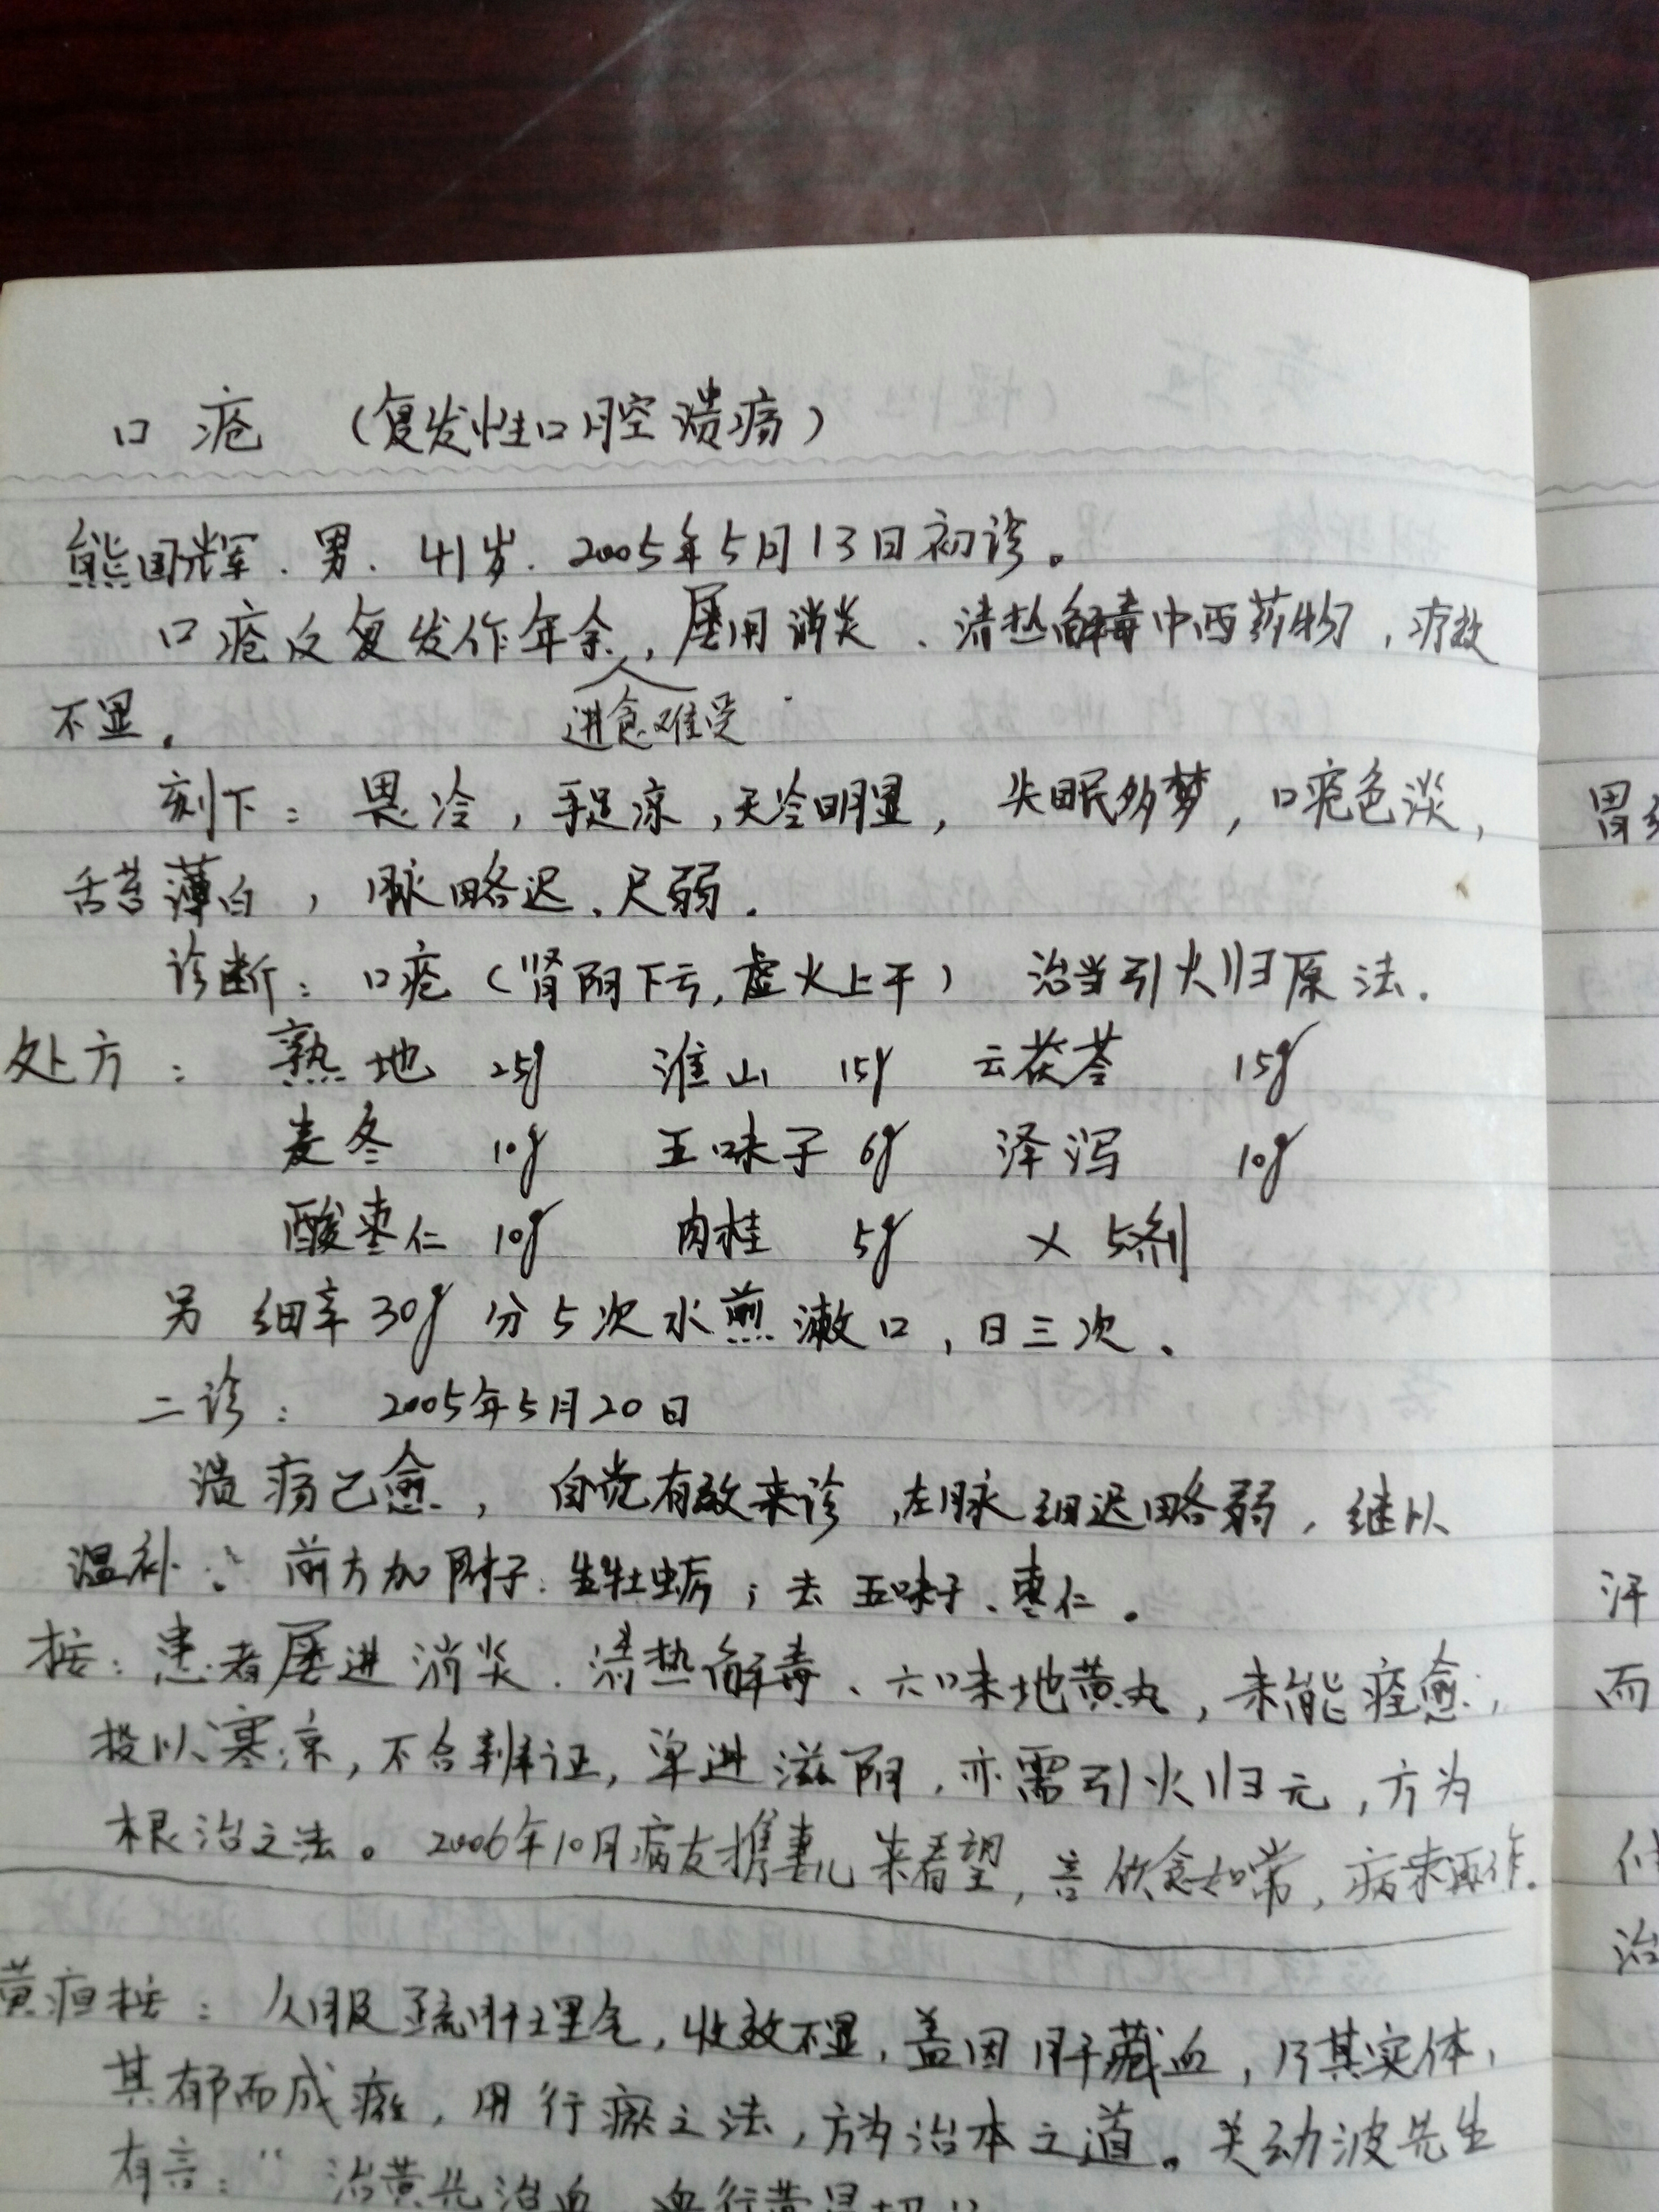 口疮 （复发性口腔溃疡）
熊国辉．男．41岁．2005年5月13日初诊。
口疮反复发作年余，屡用消炎、清热解毒中西药物，疗效
进食难受
不显。
刻下：畏冷，手足凉，天冷明显，失眠多梦，口疮色淡，
舌苔薄白，脉略迟、尺弱．
诊断：口疮（肾阴下亏，虚火上干） 治当引火归原法．
处方：熟地 25g 淮山 15g 云茯苓 15g
麦冬 10g 五味子 6g 泽泻 10g
酸枣仁 10g 肉桂 5g × 5剂
另 细辛30g 分5次水煎漱口，日三次．
二诊：2005年5月20日
溃疡已愈，自觉有效来诊，左脉细迟略弱，继以
温补：前方加附子．生牡蛎；去五味子、枣仁．
按：患者屡进消炎．清热解毒、六味地黄丸，未能痊愈，
投以寒凉，不合辨证，单进滋阴，亦需引火归元，方为
根治之法。2006年10月病友携妻儿来看望，言饮食如常，病未再作．
胃
汗
而
治
黄疸按：久服疏肝理气，收效不显，盖因肝藏血，乃其实体，
其郁而成瘀，用行瘀之法，方为治本之道。关幼波先生
有言：“治黄先治血，血行黄